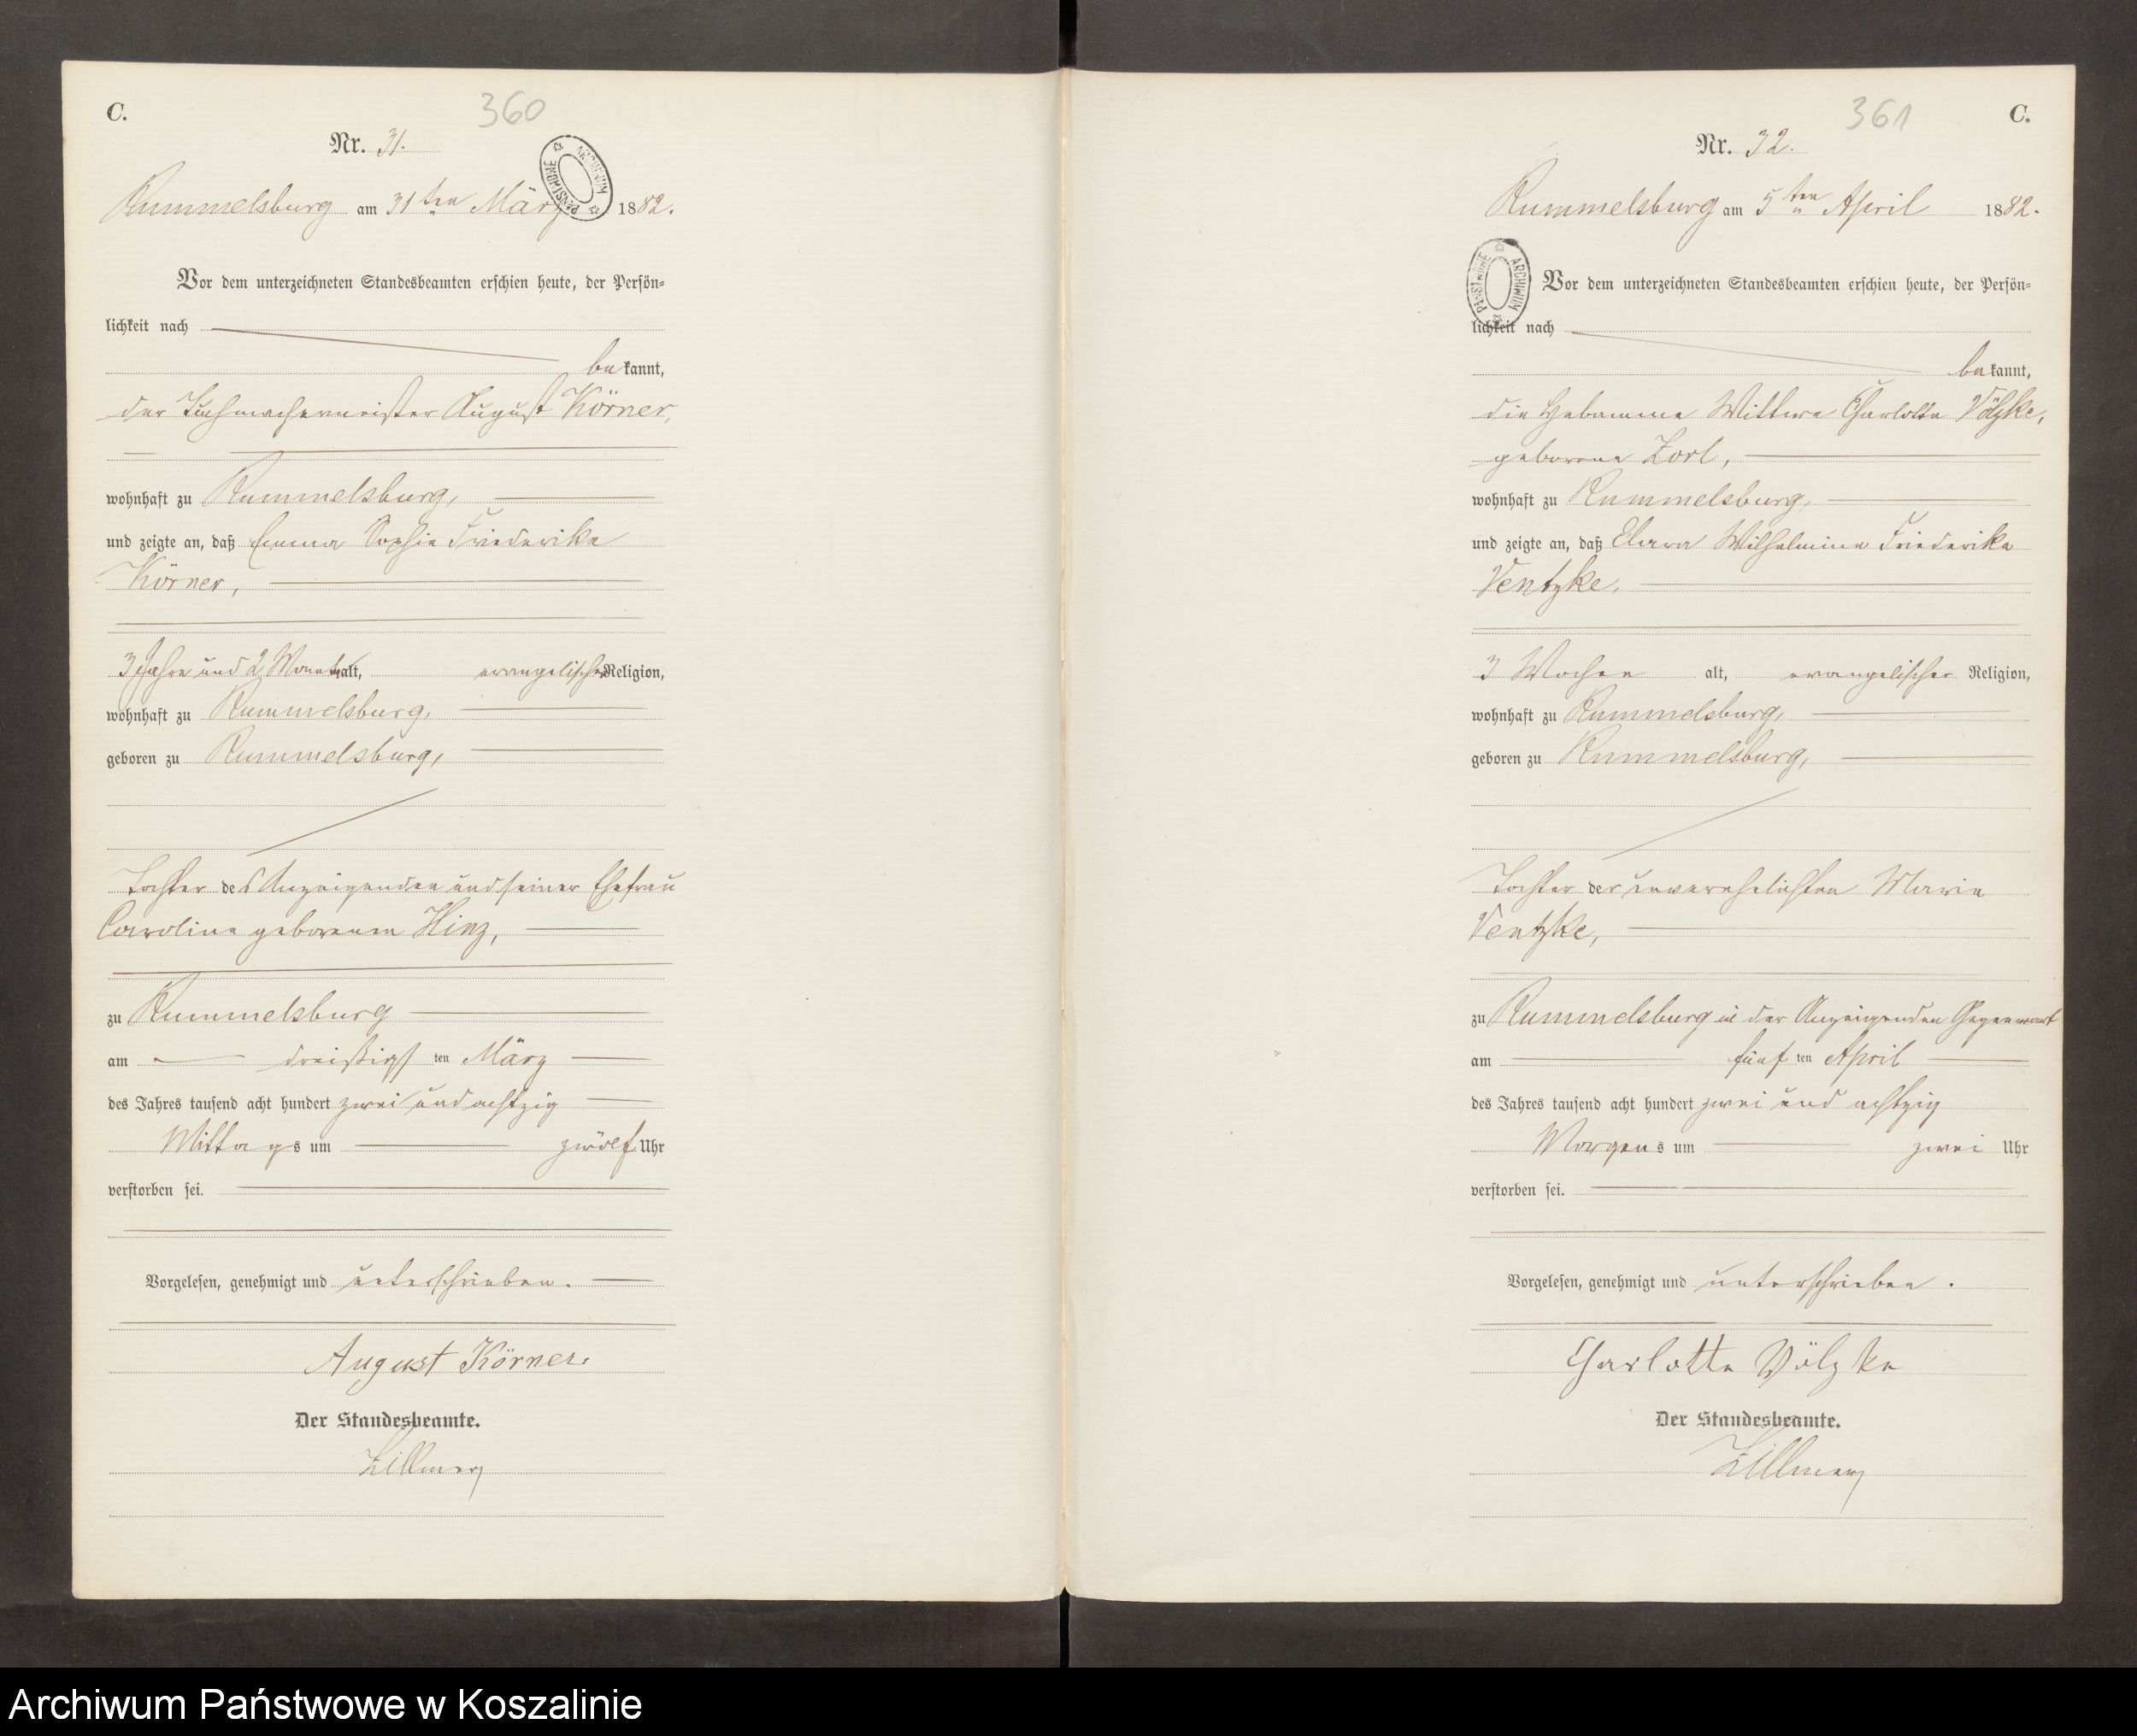 C.
360
Nr. 31.
ARCHIWUM PAŃSTWOWE
Rummelsburg am 31ten März 1882.
Vor dem unterzeichneten Standesbeamten erschien heute, der Persön-
lichkeit nach
bekannt,
der Tuchmachermeister August Körner,
wohnhaft zu Rummelsburg,
und zeigte an, daß Emma Sophie Friederike
Körner,
3 Jahre und 2 Monate alt, evangelischer Religion,
wohnhaft zu Rummelsburg,
geboren zu Rummelsburg,
Tochter des Anzeigenden und seiner Ehefrau
Caroline geborenen Hinz,
zu Rummelsburg
am dreißigsten März
des Jahres tausend acht hundert zwei und achtzig
Mittags um zwölf Uhr
verstorben sei.
Vorgelesen, genehmigt und unterschrieben.
August Körner.
Der Standesbeamte.
Zillmer
361
C.
Nr. 32.
Rummelsburg am 5ten April 1882.
ARCHIWUM PAŃSTWOWE
Vor dem unterzeichneten Standesbeamten erschien heute, der Persön-
lichkeit nach
bekannt,
die Hebamme Wittwe Charlotte Völzke,
geborene
wohnhaft zu Rummelsburg,
und zeigte an, daß Clara Wilhelmine Friederike
Ventzke,
3 Wochen alt, evangelischer Religion,
wohnhaft zu Rummelsburg,
geboren zu Rummelsburg,
Tochter der unverehelichten Marie
Ventzke,
zu Rummelsburg in der Anzeigenden Gegenwart
am fünften April
des Jahres tausend acht hundert zwei und achtzig
Morgens um zwei Uhr
verstorben sei.
Vorgelesen, genehmigt und unterschrieben.
Charlotte Völzke
Der Standesbeamte.
Zillmer
Archiwum Państwowe w Koszalinie